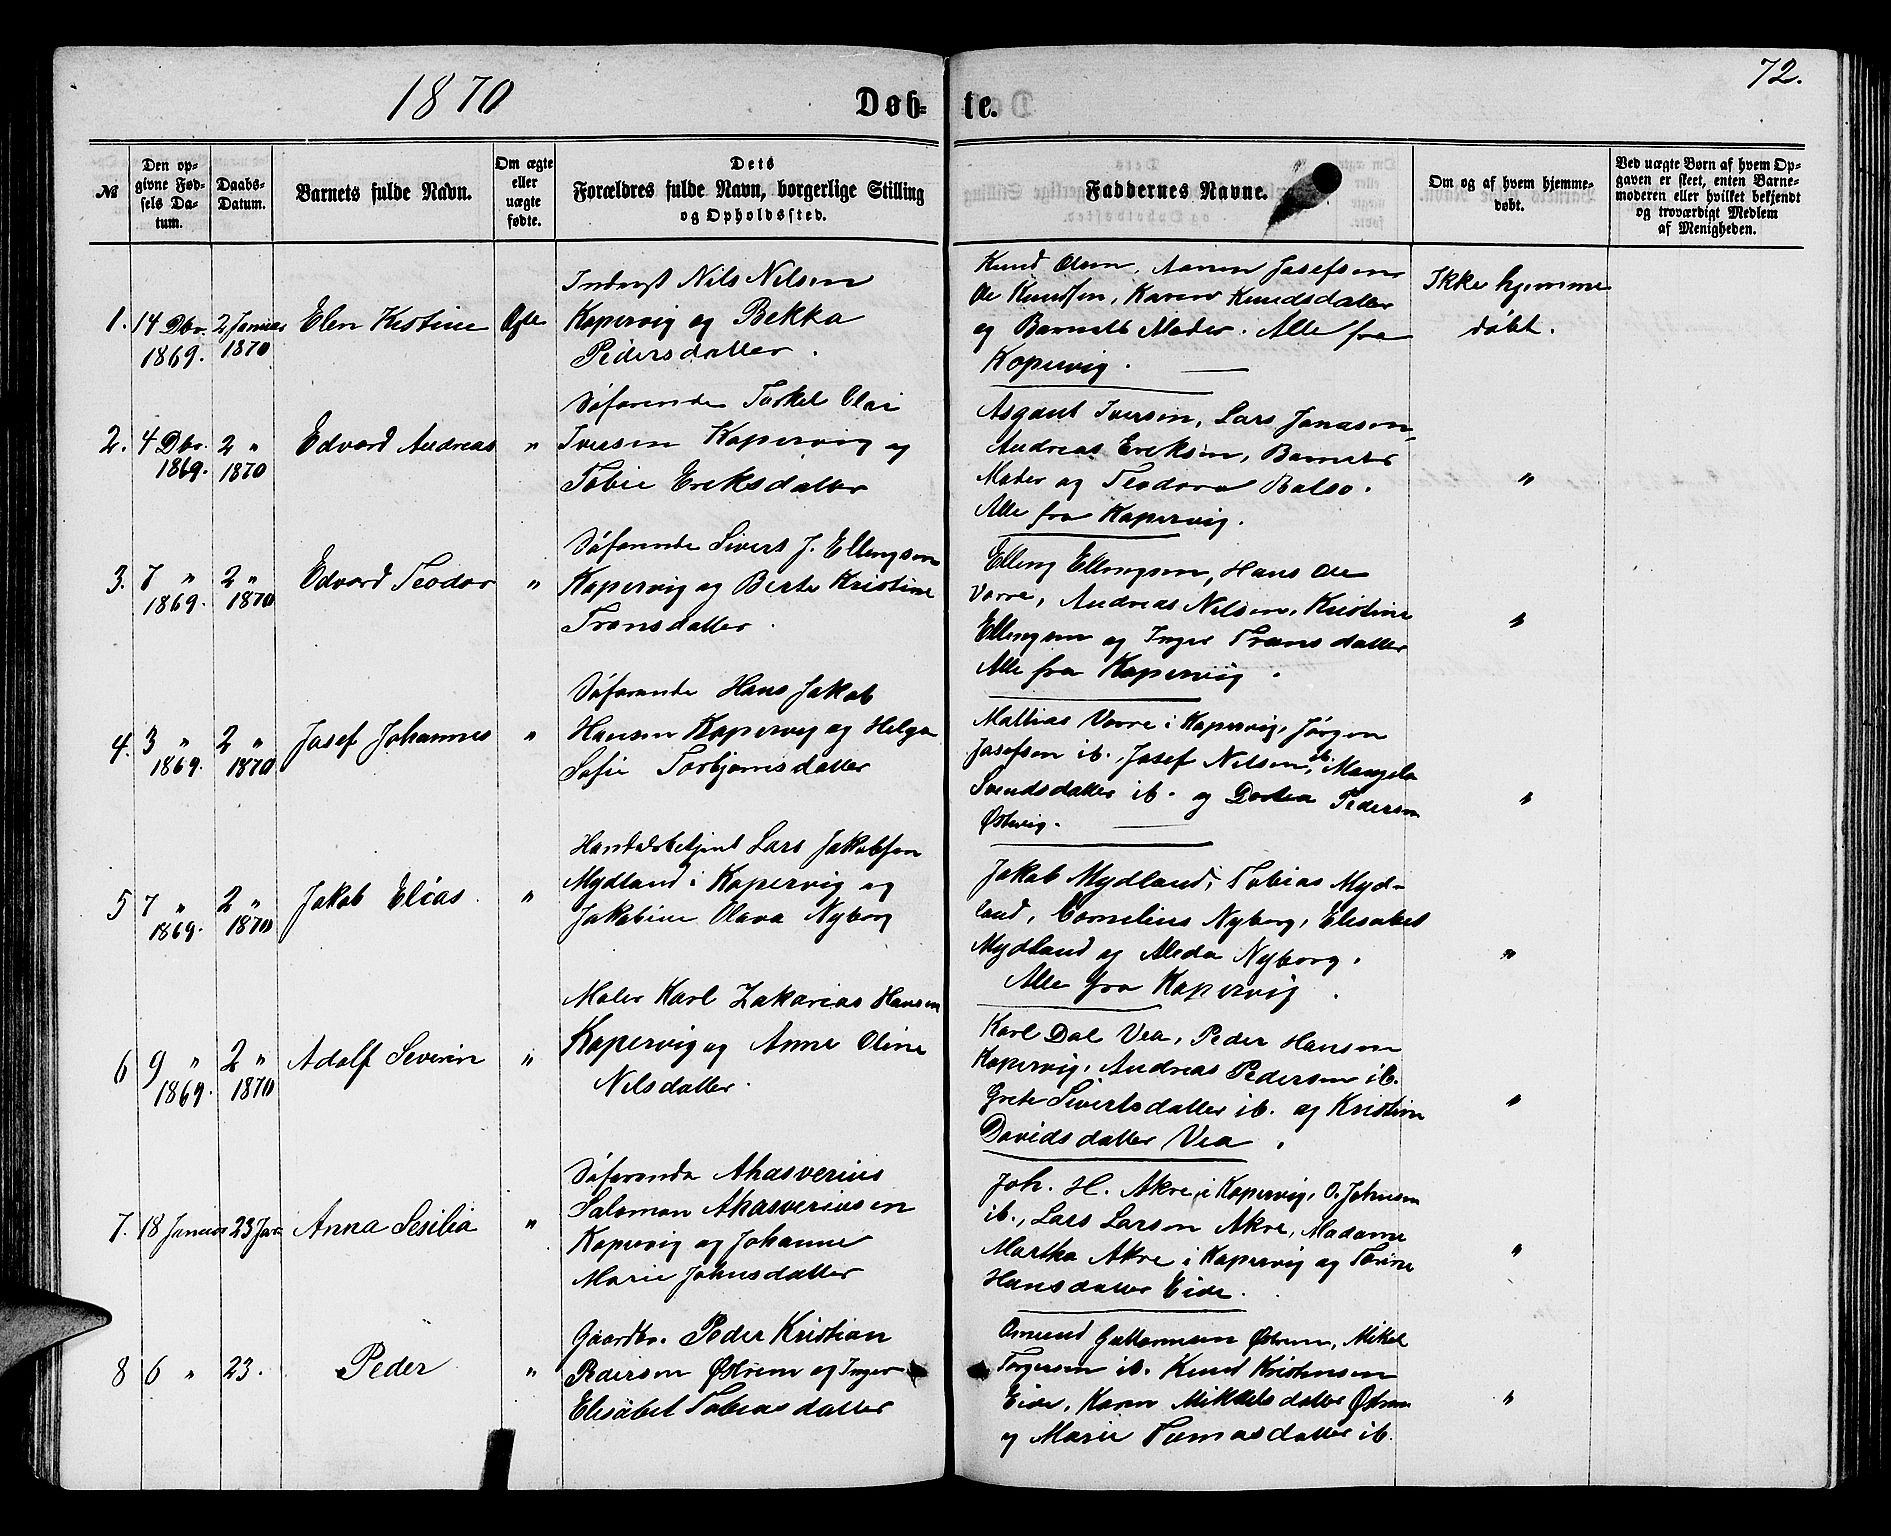 1870
Døb-
te.
72.
№
Den op-
givne Fød-
sels Da-
tum.
Daabs-
Datum.
Barnets fulde Navn.
Om ægte
eller
uægte
fødte.
Dets
Forældres fulde Navn, borgerlige Stilling
og Opholdssted.
Faddernes Navne.
Om og af hvem hjemme-
døbt.
Ved uægte Børn af hvem Op-
gaven er skeet, enten Barne-
moderen eller hvilket bekjendt
og troværdigt Medlem
af Menigheden.
1.
14 Dbr.
1869.
2 Januar
1870
Elen Kistine
Ægte
Inderst Nils Nilsen
Kopervig og Bekka
Pedersdatter.
Knud Olsen, Aanen Josefsen
Ole Knudsen, Karen Knudsdatter
og Barnets Moder. Alle fra
Kopervig.
Ikke hjemme
døbt.
2.
4 Dbr.
1869.
2 "
1870
Edvard Andreas
"
Søfarende Torkel Olai
Iversen Kopervig og
Tobie Eriksdatter
Asgaut Iversen, Lars Jonasen,
Andreas Eriksen, Barnets
Moder og Teodora Balso.
Alle fra Kopervig.
"
3.
7 "
1869.
2 "
1870
Edvard Teodor
"
Søfarende Sivert J. Ellingsen
Kopervig og Berte Kristine
Transdatter.
Elling Ellingsen, Hans Ole
Vorre, Andreas Nilsen, Kristine
Ellingsen og Inger Transdatter
Alle fra Kopervig.
"
4.
3 "
1869.
2 "
1870
Josef Johannes
"
Søfarende Hans Jakob
Hansen Kopervig og Helga
Sofie Torbjørnsdatter
Mattias Vorre i Kopervig, Jørgen
Josefsen ib., Josef Nilsen ib., Mangela
Svendsdatter ib. og Dortea Pedersen
Østevig.
"
5
7 "
1869.
2 "
1870
Jakob Elias.
"
Handelsbetjent Lars Jakobsen
Mydland i Kopervig og
Jakobine Olava Nyborg
Jakob Mydland, Tobias Myd-
land, Cornelius Nyborg, Elisabet
Mydland og Aleda Nyborg.
Alle fra Kopervig.
"
6
9 "
1869.
2 "
1870
Adolf Severin
"
Maler Karl Zakarias Hansen
Kopervig og Anne Oline
Nilsdatter.
Karl Dal Vea, Peder Hansen
Kopervig, Andreas Pedersen ib.
Grete Sivertsdatter ib. og Kristine
Davidsdatter Vea.
"
7.
18 Januar
23 Jan
Anna Sesilia
"
Søfarende Ahasverius
Salomon Ahasveriussen
Kopervig og Johanne
Marie Johnsdatter
Joh. H. Akre i Kopervig, O. Johnsen
ib., Lars Larsen Akre, Madame
Martha Akre i Kopervig og Torine
Hansdatter Eide.
"
8
6 "
23.
Peder
"
Gaardbr. Peder Kristian
Pedersen Østrem og Inger
Elisabet Tobiasdatter
Omund Guttormsen Østrem, Mikel
Torgersen ib. Knud Kristensen
Eide, Karen Mikkelsdatter Østrem
og Marie Tomasdatter ib.
"